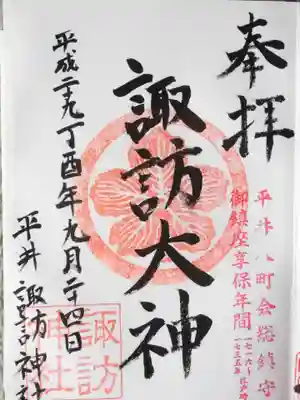 奉拝
平井八町会総鎮守
御鎮座享保年間
一七一六〜
一七三五
諏訪大神
平成二十九丁酉年九月二十四日
平井 諏訪神社
諏訪
神社